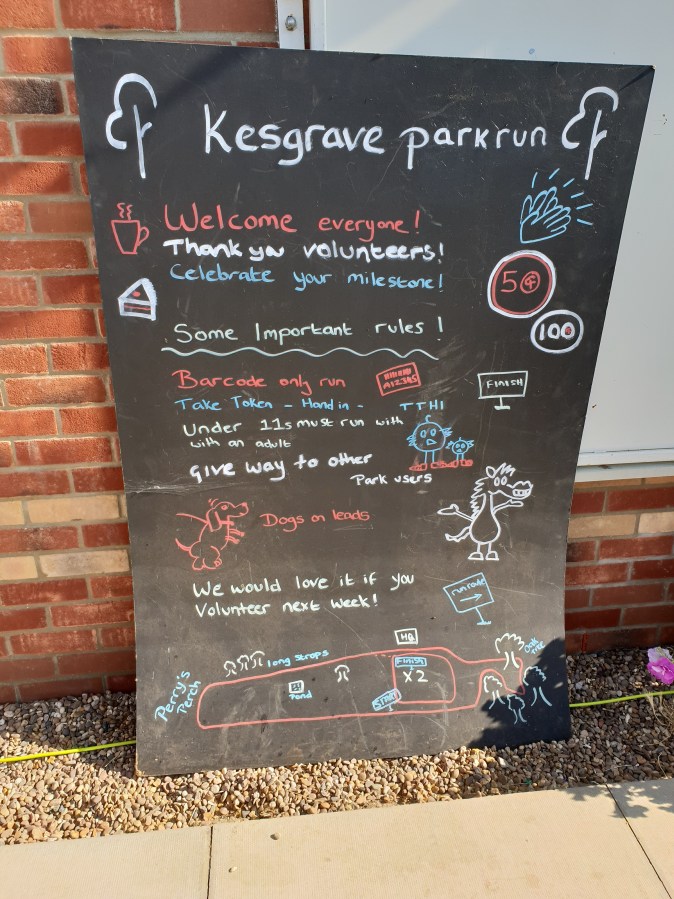 Kesgrave parkrun
Welcome everyone!
Thank you volunteers!
Celebrate your milestone!
50
100
Some Important rules!
Barcode only run
A12345
FINISH
Take Token - Hand in -
Under 11s must run with
with an adult
give way to other
Park users
Dogs on leads
We would love it if you
Volunteer next week!
run route
HQ
long straps
FINISH
X2
Oak
Perry's
Perch
Pond
START